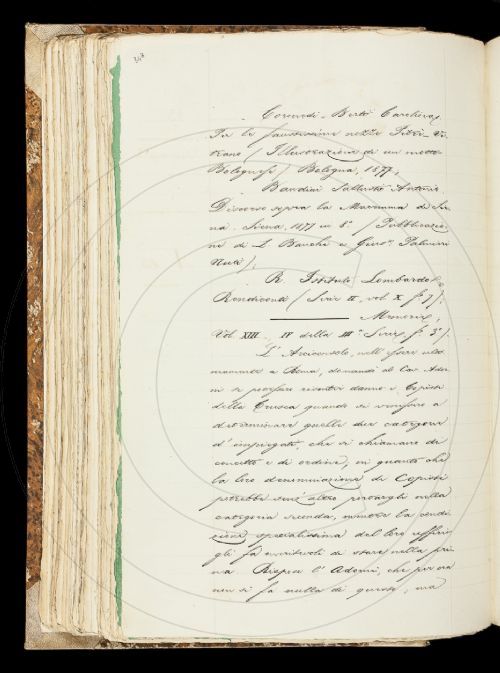 Coronedi-Berti Carolina
Per le faustissime nozze Pizzi-
(Illustrazione di un motto
Bolognese) Bologna, 1877;
Bandini Sallustio Antonio
Discorso sopra la Maremma di Sie
na. Siena, 1877 in 8° (Pubblicazio
ne di L. Banchi e Palmieri
Nuti);
R. Istituto Lombardo
Rendiconti (Serie II, vol. X, f° 7);
Memorie,
Vol. XIII, IV della IIIa Serie, f° 3°).
L'Arciconsolo, nell'
a Roma, domandò al Cav.
ni se potesse danno i Copisti
della Crusca quando si venisse a
determinare quelle due categorie
d'impiegati, che si chiamano di
concetto e di ordine, in quanto che
la loro denominazione di Copisti
potrebbe senz'altro portargli nella
categoria seconda, mentre la condi
zione specialissima del loro ufficio
gli fa meritevoli di stare nella pri
ma. Rispose l'Adorni, che per ora
non si fa nulla di questo, ma